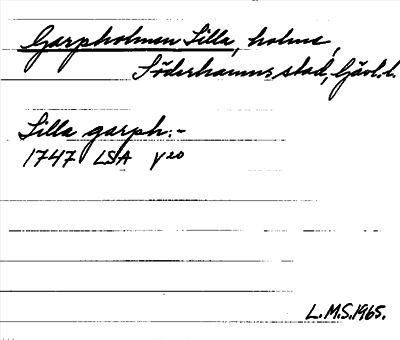 Garpholmen Lilla, holme,
Söderhamns stad, Gävl.l.
Lilla garph:-
1747 LSA
L.M.S. 1965.